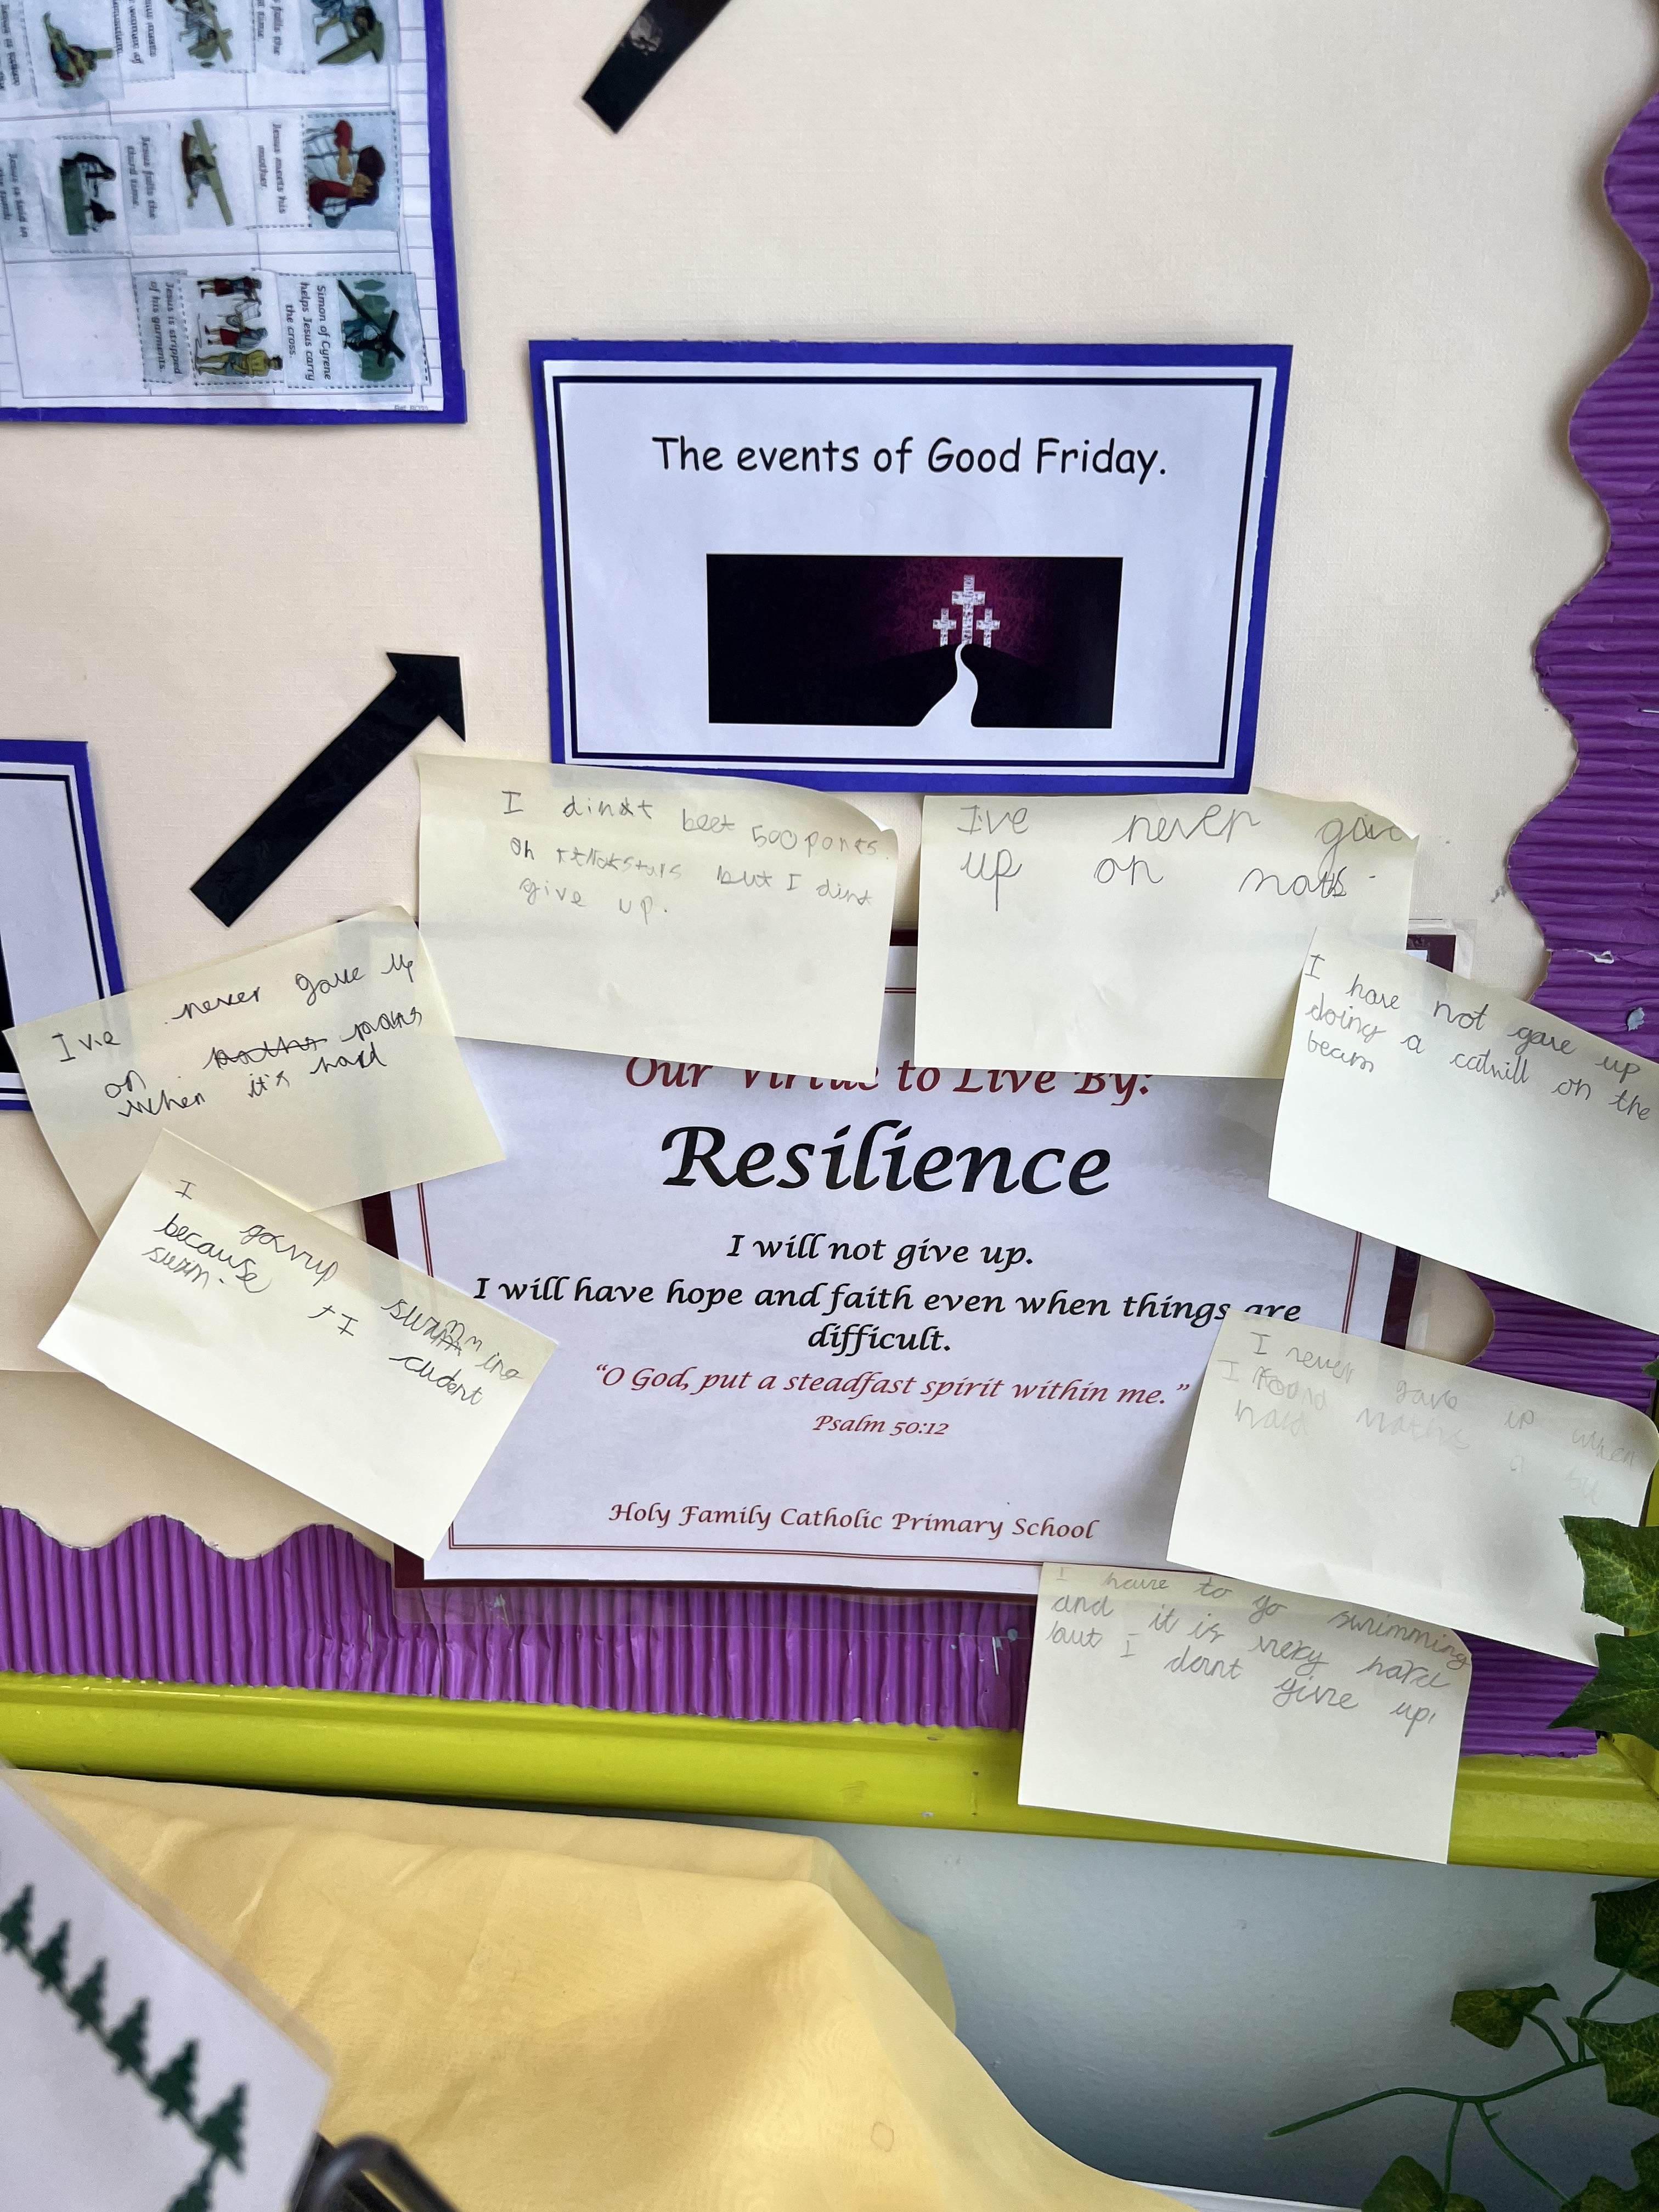 falls the
time.
Jesus meets his
mother.
Jesus falls the
third time.
Simon of Cyrene
helps Jesus carry
the cross.
Jesus is stripped
of his garments.
The events of Good Friday.
I dindt beet 500 ponts
on but I dint
give up.
I've never gave
up on maths
I've never gave up
on maths
when it's hard
I have not gave up
doing a catwill on the
beam
Our Virtue to Live By:
Resilience
I will not give up.
I will have hope and faith even when things are
difficult.
"O God, put a steadfast spirit within me."
Psalm 50:12
Holy Family Catholic Primary School
I
because I cudent
swim.
I never gave up when
I found maths a
hard
I have to go swimming
and it is very hard
but I dont give up!